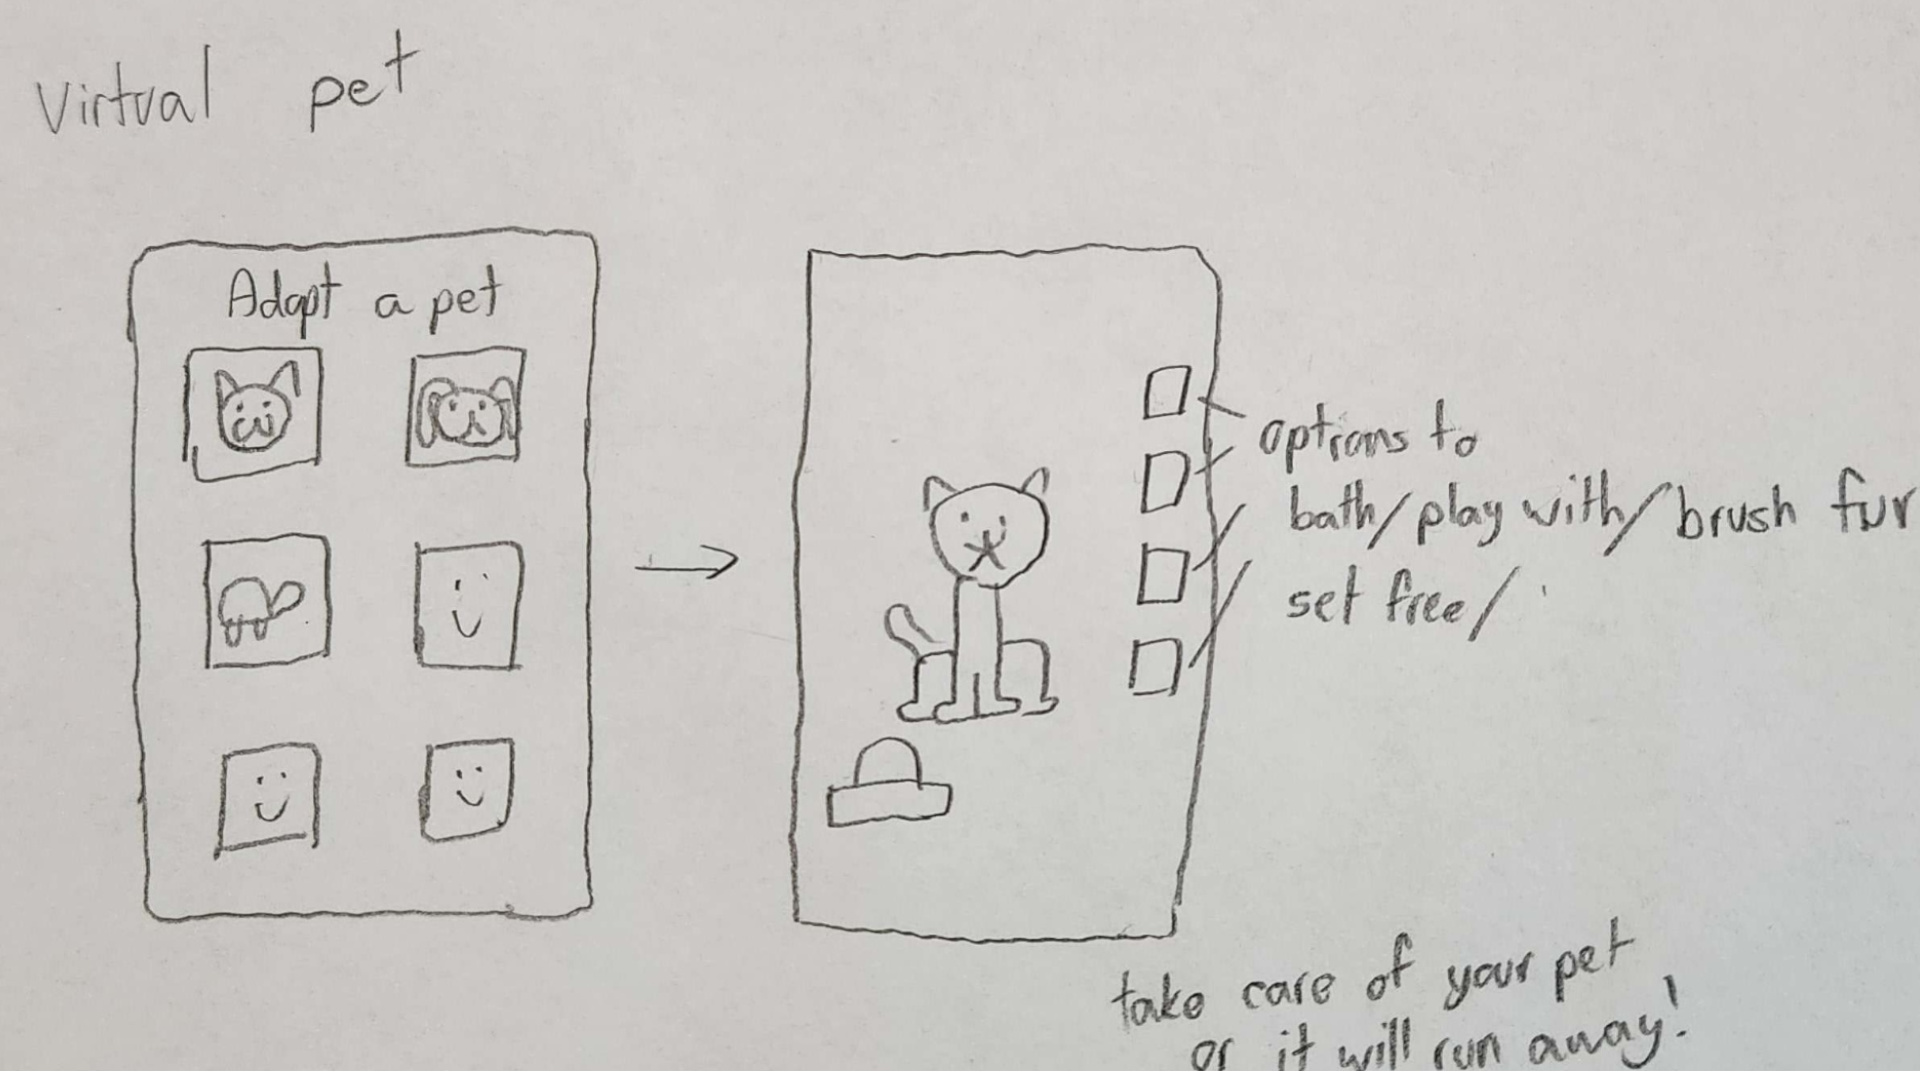 Virtual pet
Adopt a pet
options to
bath/play with/brush fur
set free/
take care of your pet
or it will run away!